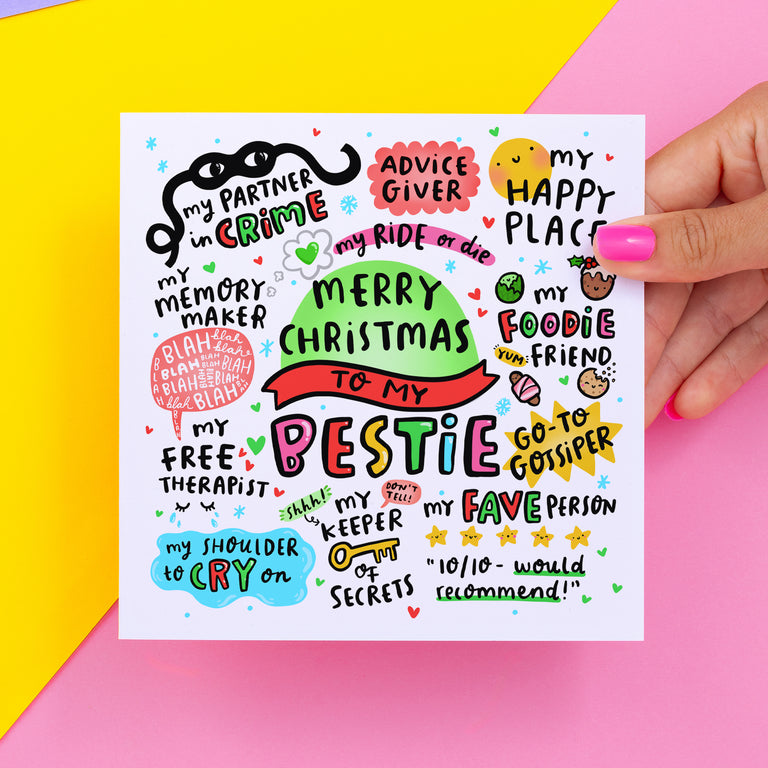 my PARTNER
in CRiME
ADVICE
GiVER
my
HAPPY
PLACE
my RiDE or die
my
MEMORY
MAKER
MERRY
CHRiSTMAS
TO MY
BESTiE
my
FOODiE
FRiEND
YUM
BLAH blah
blah
BLAH BLAH
BLAH BLAH
blah BLAH
my
FREE
THERAPiST
GO-TO
GOSSiPER
shhh!
DON'T
TELL!
my
KEEPER
OF
SECRETS
my FAVE PERSON
"10/10 - would
recommend!"
my SHOULDER
to CRY on